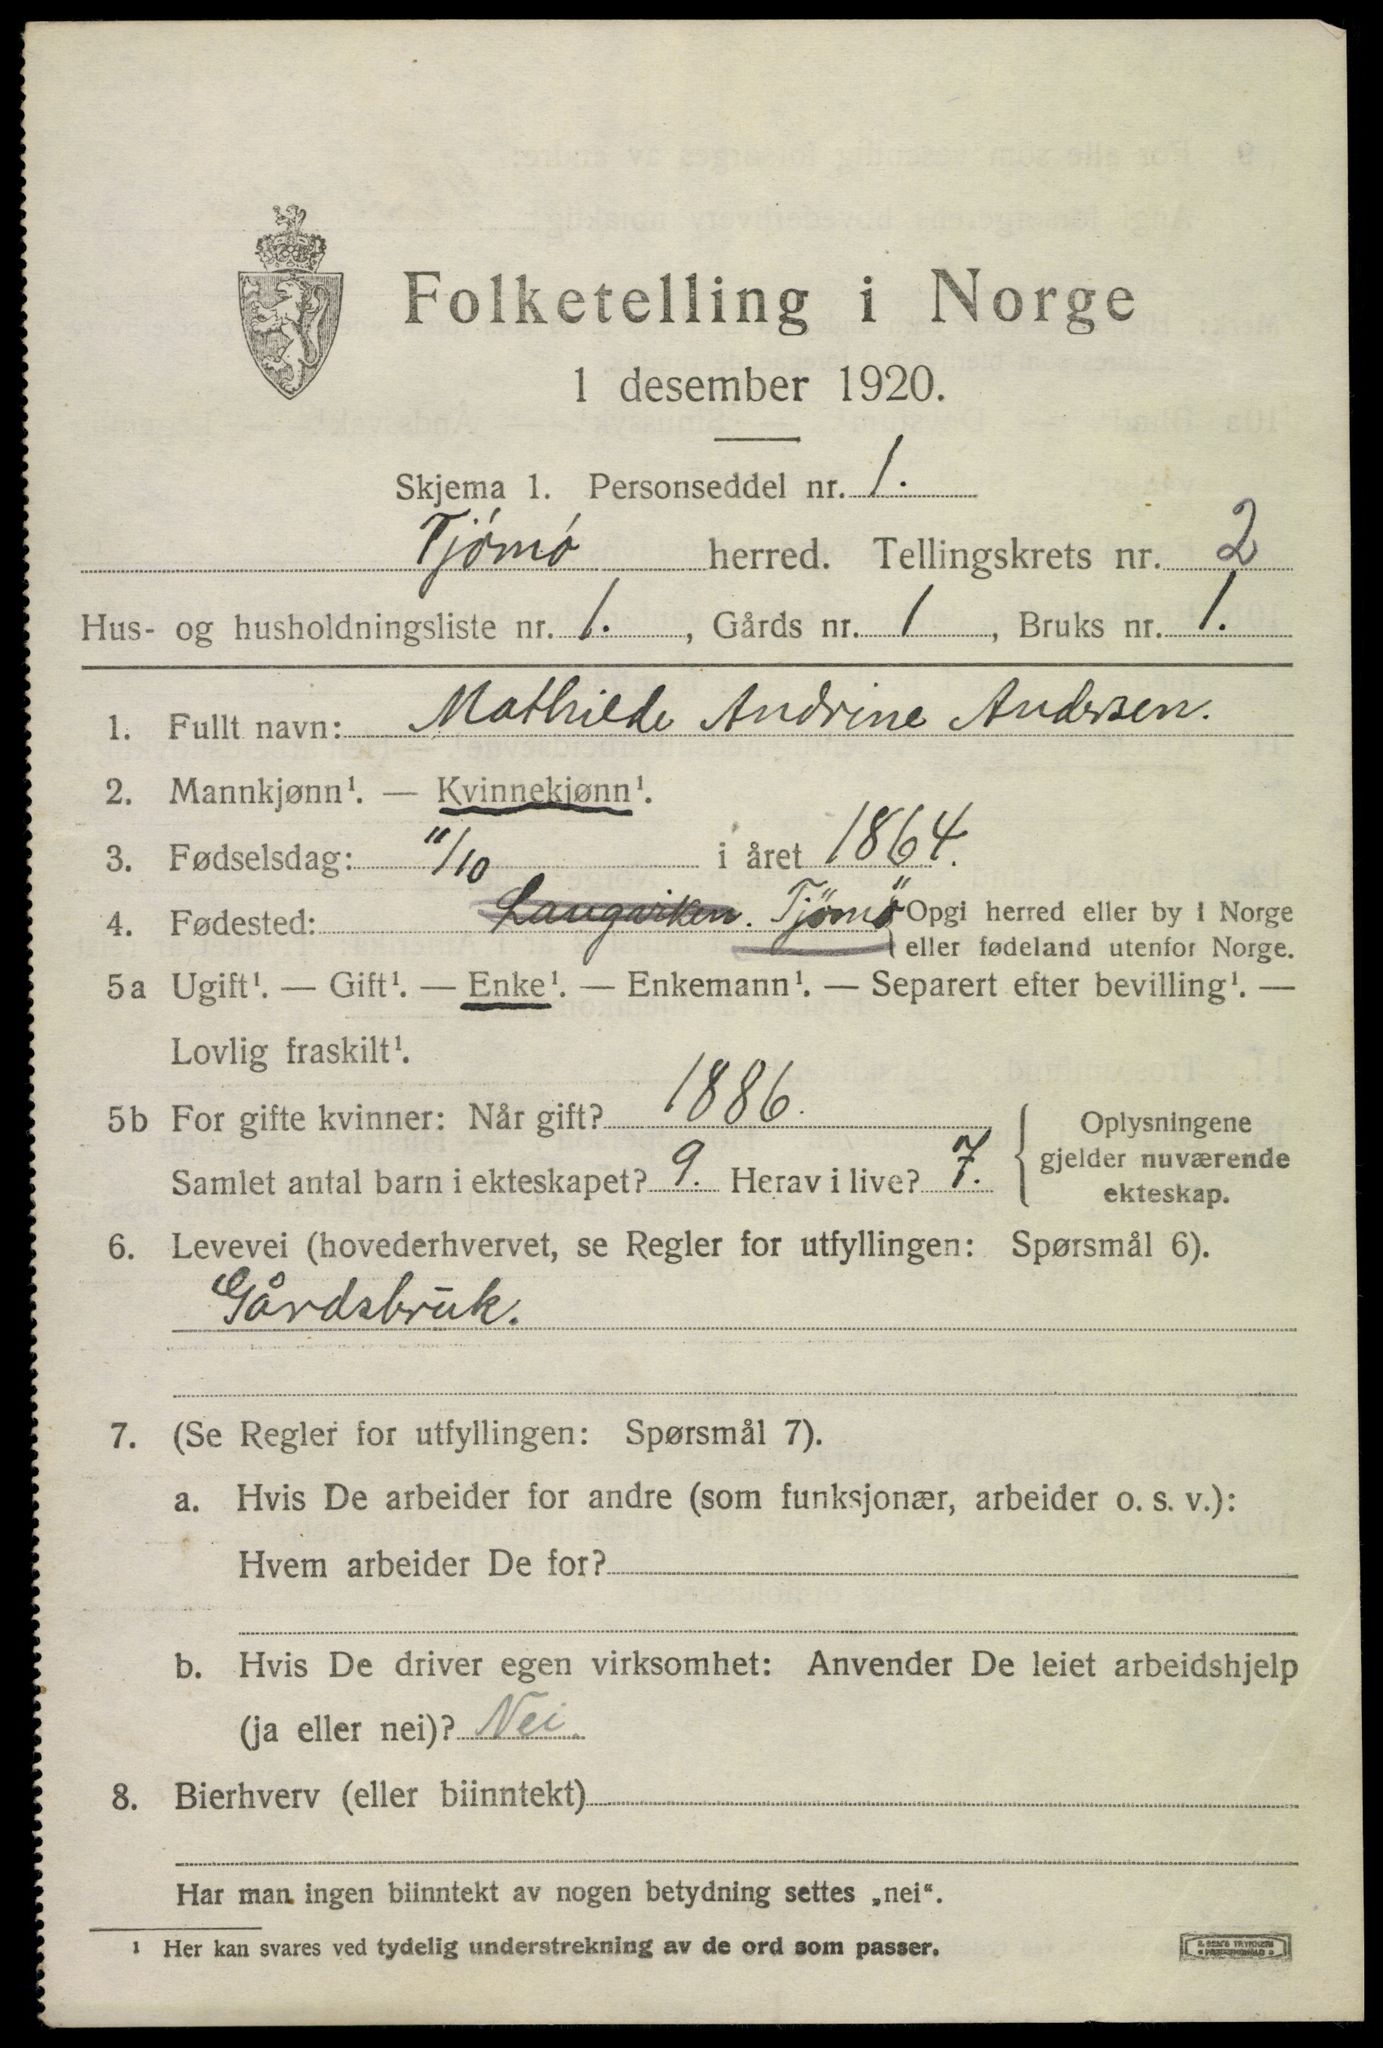 Folketelling i Norge
1 desember 1920.
Skjema 1. Personseddel nr. 1.
Tjömö herred. Tellingskrets nr. 2
Hus- og husholdningsliste nr. 1. , Gårds nr. 1 , Bruks nr. 1.
1. Fullt navn: Mathilde Andrine Andersen.
2. Mannkjønn¹. — Kvinnekjønn¹.
3. Fødselsdag: 11/10 i året 1864.
4. Fødested: Tjömö Opgi herred eller by i Norge
eller fødeland utenfor Norge.
5a Ugift¹. — Gift¹. — Enke¹. — Enkemann¹. — Separert efter bevilling¹. —
Lovlig fraskilt¹.
5b For gifte kvinner: Når gift? 1886.
Samlet antal barn i ekteskapet? 9. Herav i live? 7.
Oplysningene
gjelder nuværende
ekteskap.
6. Levevei (hovederhvervet, se Regler for utfyllingen: Spørsmål 6).
Gårdsbruk.
7. (Se Regler for utfyllingen: Spørsmål 7).
a. Hvis De arbeider for andre (som funksjonær, arbeider o. s. v.):
Hvem arbeider De for?
b. Hvis De driver egen virksomhet: Anvender De leiet arbeidshjelp
(ja eller nei)? Nei
8. Bierhverv (eller biinntekt)
Har man ingen biinntekt av nogen betydning settes „nei“.
¹ Her kan svares ved tydelig understrekning av de ord som passer.